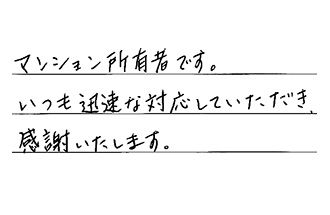 マンション所有者です。
いつも迅速な対応していただき、
感謝いたします。